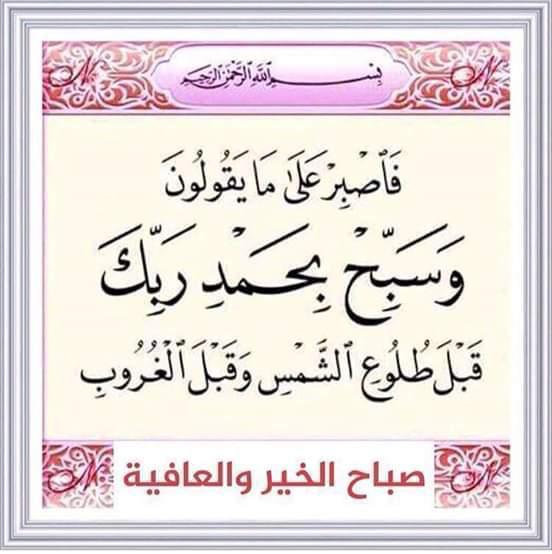 بِسْمِ اللَّهِ الرَّحْمَٰنِ الرَّحِيمِ
فَٱصْبِرْ عَلَىٰ مَا يَقُولُونَ
وَسَبِّحْ بِحَمْدِ رَبِّكَ
قَبْلَ طُلُوعِ ٱلشَّمْسِ وَقَبْلَ ٱلْغُرُوبِ
صباح الخير والعافية